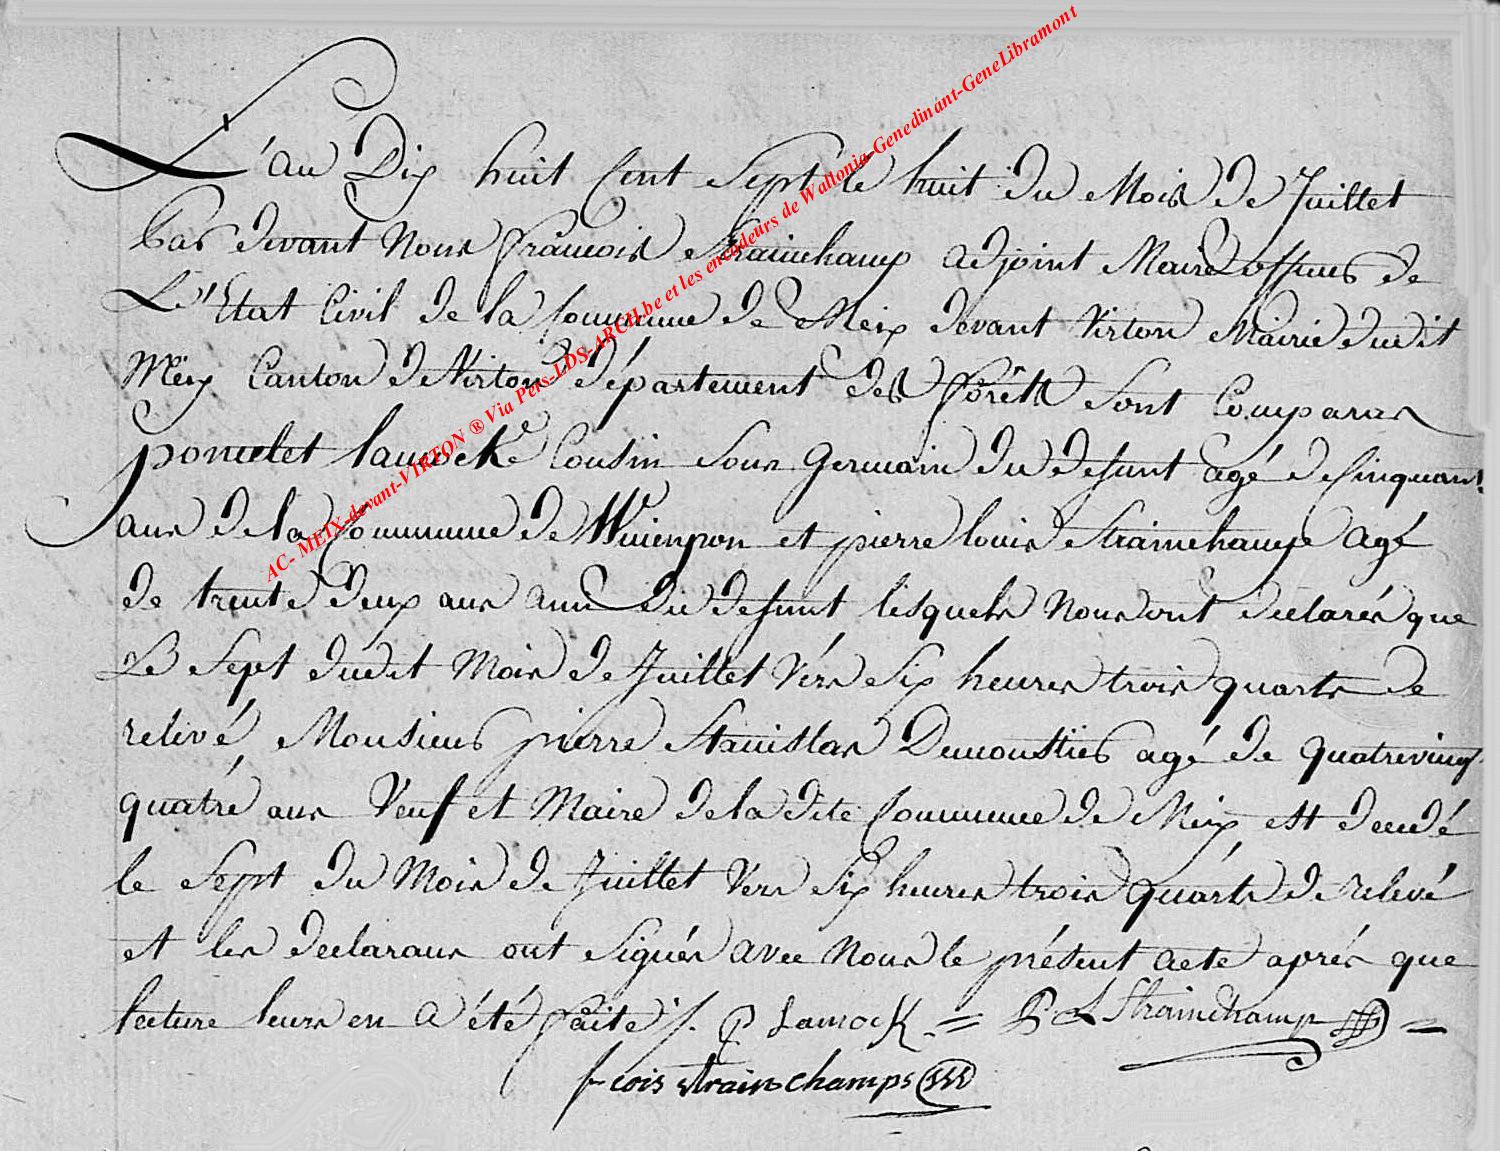 L'an Dix huit Cent Sept le huit du Mois de Juillet
Par devant Nous François Strainchamp adjoint Maire officier de
L'Etat Civil de la Commune de Meix devant Virton Mairie dudit
Meix Canton de Virton département des forêts sont Comparus
ponselet lamock Cousin sous Germain du defunt agé de Cinquant
ans de la Commune de et pierre louis Strainchamps agé
de trente deux ans ami du defunt lesquels Nous ont declarés que
Le Sept dudit Mois de Juillet Vers Six heures trois quarts de
relivé Monsieur pierre Stanislas Demoustier agé de quatreving
quatré ans Veuf et Maire de la dite Commune de Meix est decedé
le Sept du Mois de Juillet Vers Six heures trois quarts de relevé
et les declarans ont Signés avec Nous le présent acte aprés que
lecture leurs en a été faite J. P Lamock = P. L Strainchamp =
fcois strainchamps
AC- MEIX-devant-VIRTON ® Via Pers-LDS-ARCH.be et les encodeurs de Wallonia-Genedinant-GeneLibramont